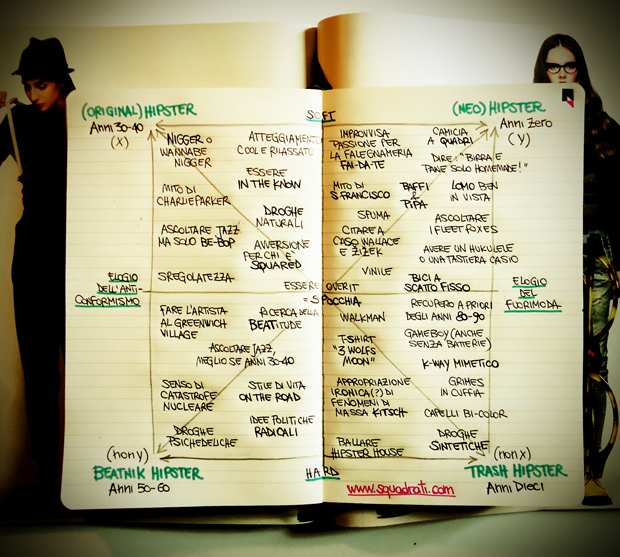 (ORIGINAL) HIPSTER
Anni 30-40
(X)
SOFT
(NEO) HIPSTER
Anni Zero
(Y)
NIGGER O
WANNABE
NIGGER
MITO DI
CHARLIE PARKER
ASCOLTARE JAZZ
MA SOLO BE-BOP
SREGOLATEZZA
ATTEGGIAMENTO
COOL E RILASSATO
ESSERE
IN THE KNOW
DROGHE
NATURALI
AVVERSIONE
PER CHI È
SQUARED
IMPROVVISA
PASSIONE PER
LA FALEGNAMERIA
FAI-DA-TE
MITO DI
S. FRANCISCO
SPUMA
CITARE A
CASO WALLACE
E ZIZEK
VINILE
BAFFI
E
PIPA
CAMICIA
A QUADRI
DIRE: "BIRRA E
PANE SOLO HOMEMADE!"
LOMO BEN
IN VISTA
ASCOLTARE
I FLEET FOXES
AVERE UN HUKULELE
O UNA TASTIERA CASIO
BICI A
SCATTO FISSO
ELOGIO
DELL'ANTI-
CONFORMISMO
ESSERE OVER IT
= SPOCCHIA
ELOGIO
DEL
FUORIMODA
FARE L'ARTISTA
AL GREENWICH
VILLAGE
RICERCA DELLA
BEATITUDE
ASCOLTARE JAZZ,
MEGLIO SE ANNI 30-40
SENSO DI
CATASTROFE
NUCLEARE
STILE DI VITA
ON THE ROAD
IDEE POLITICHE
RADICALI
DROGHE
PSICHEDELICHE
WALKMAN
T-SHIRT
"3 WOLFS
MOON"
APPROPRIAZIONE
IRONICA(?) DI
FENOMENI DI
MASSA KITSCH
BALLARE
HIPSTER HOUSE
RECUPERO A PRIORI
DEGLI ANNI 80-90
GAMEBOY (ANCHE
SENZA BATTERIE)
K-WAY MIMETICO
GRIMES
IN CUFFIA
CAPELLI BI-COLOR
DROGHE
SINTETICHE
(non y)
BEATNIK HIPSTER
Anni 50-60
HARD
www.squadrati.com
(non x)
TRASH HIPSTER
Anni Dieci